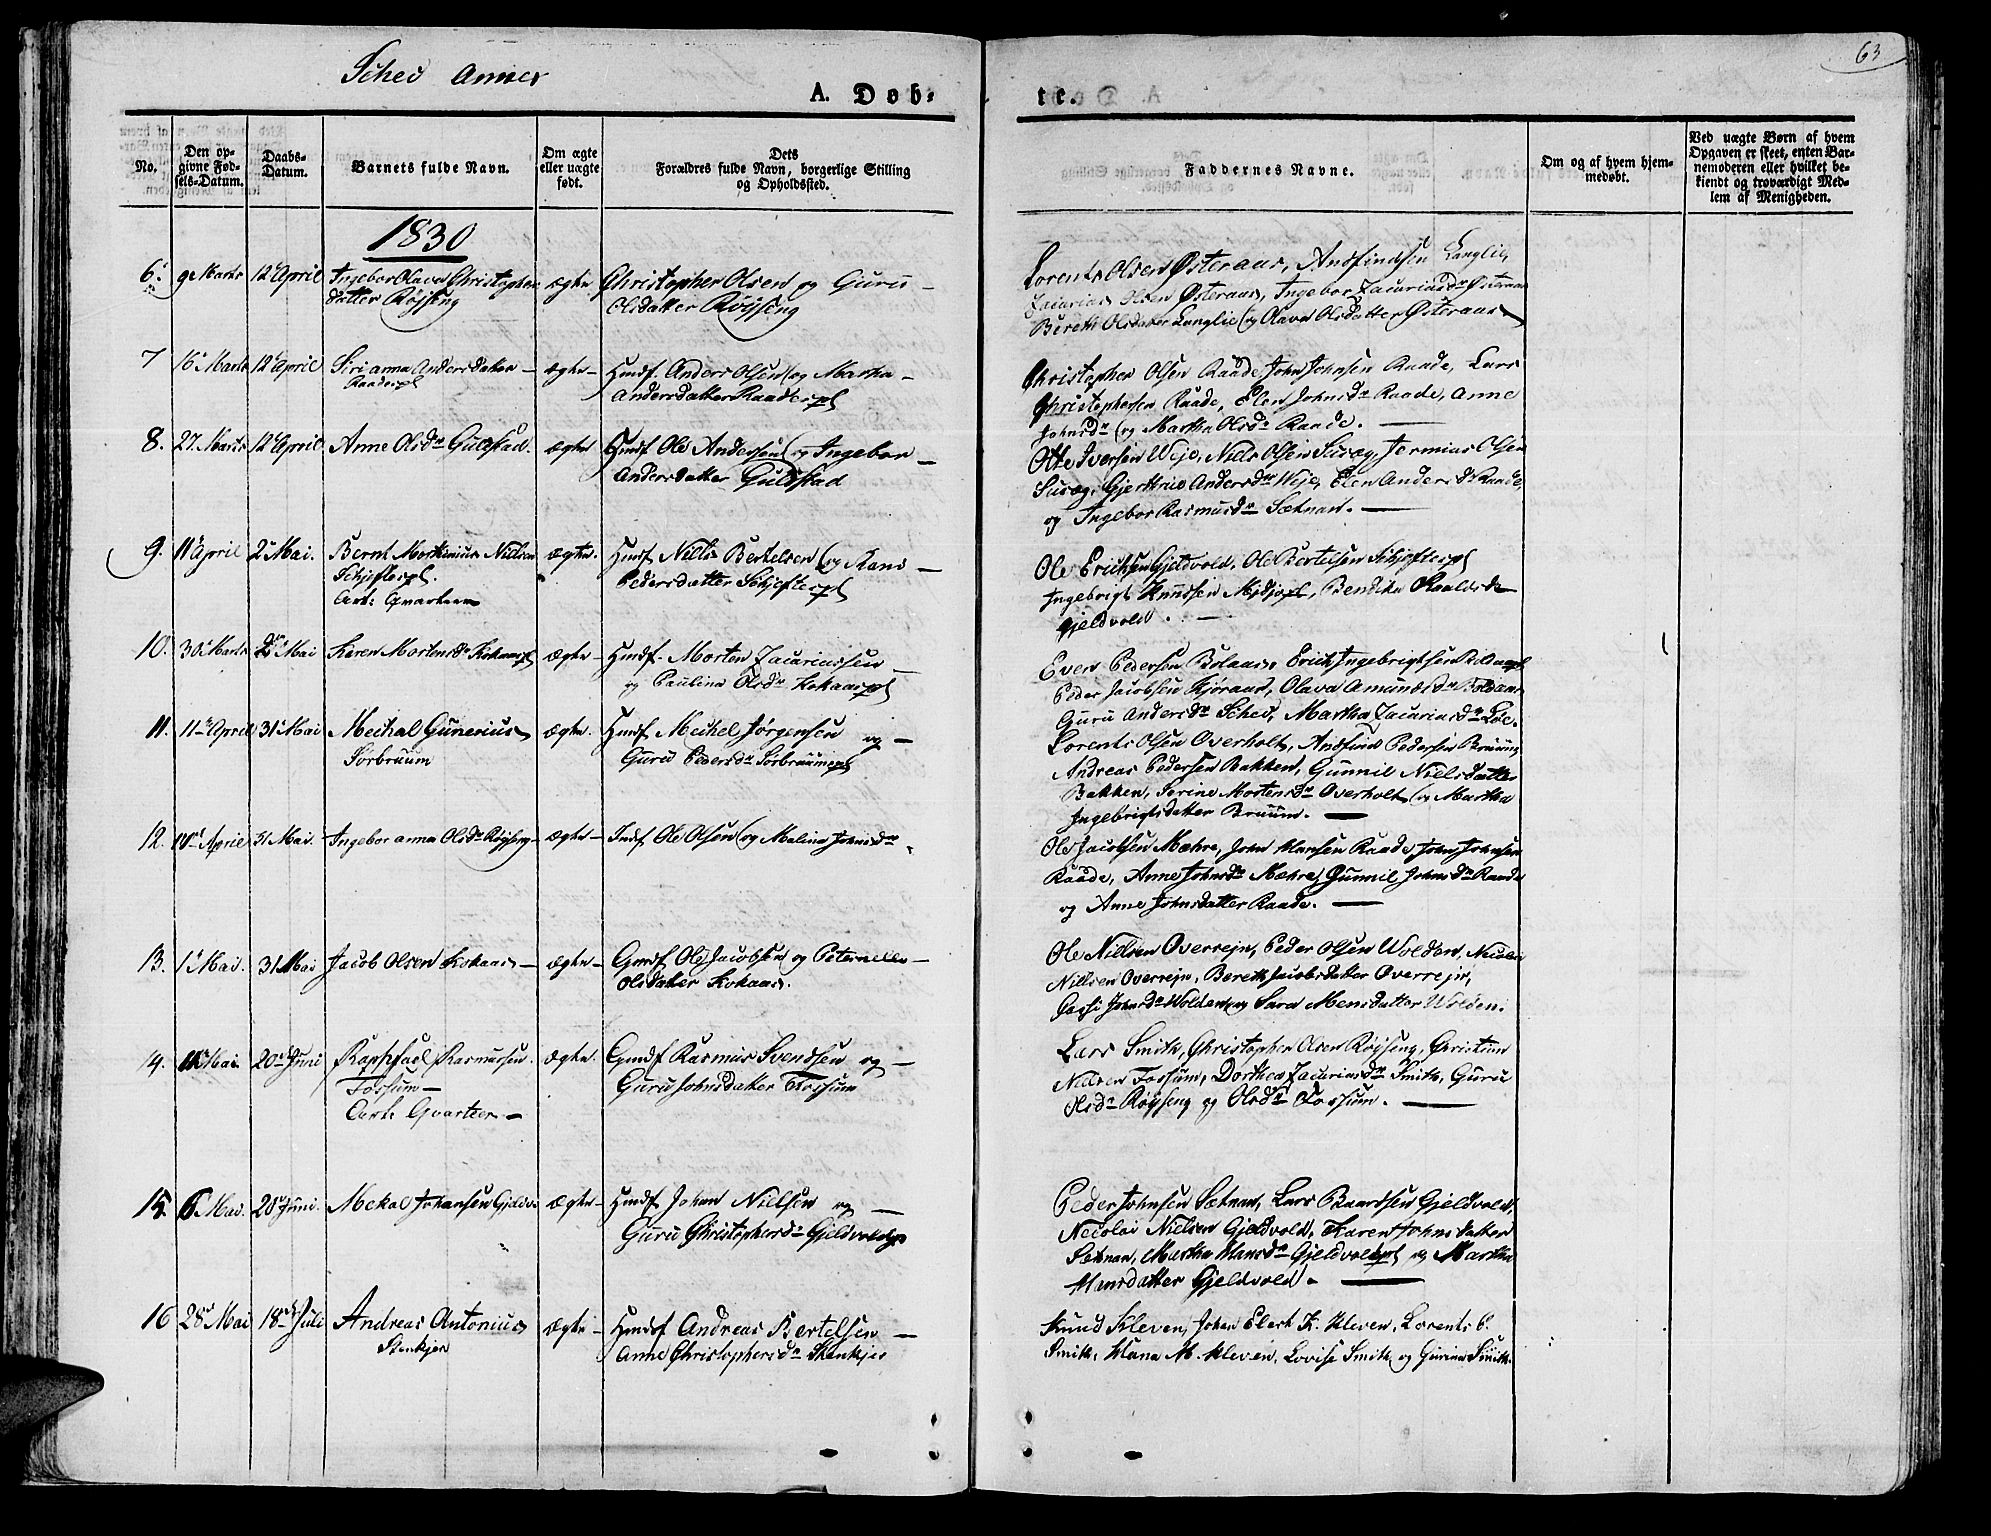 63
Sched Annex
A. Døb-
te.
No.
Den opgivne Fødsels-Datum.
Daabs-Datum.
Barnets fulde Navn.
Om ægte eller uægte født.
Dets Forældres fulde Navn, borgerlige Stilling og Opholdssted.
Faddernes Navne.
Om og af hvem hjemmedøbt.
Ved uægte Børn af hvem Opgaven er skeet, enten Barnemoderen eller hvilket bekiendt og troværdigt Medlem af Menigheden.
1830
6. 9de Marts 12te April Ingebor Olava Christopher- ægte Christopher Olsen og Guru
datter Røysseng Olsdatter Røysseng
Lorents Olsen Østeraas, Andfindsen Langlie,
Zacarias Olsen Østeraas, Ingebor Zacariasdr Østeraas
Bereth Olsdatter Langlie og Olava Olsdatter Østeraas
7 16 Marts 12 April Siri anna Andersdatter ægte Hmdf. Anders Olsen og Martha
Raadespl Andersdatter Raadespl
Christopher Olsen Raade, John Johnsen Raade, Lars
Christophersen Raade, Elen Johnsdr Raade, Anne
Johnsdr og Martha Olsdr Raade.
8. 27 Marts 12 April Anne Olsdr Gulstad. ægte Gmdf Ole Andersen og Ingebor
Andersdatter Gulstad
Otte Iversen Weje, Niels Olsen Susæg, Jermias Olsen
Susæg, Gjertrud Andersdr Weje, Elen Andersdr Raade,
og Ingebor Rasmusdr Sætnan.
9. 11 April 2 Mai. Bernt Mortinius Nielsen ægte. Hmdf Niels Bertelsen og Karn
Schjeftespl. Pedersdatter Schjeftespl
Ole Erichsen Gjeldvold, Ole Bertelsen Schjeftespl
Ingebrigt Knudsen Midjopl, Bendika Haaldsdr
Gjeldvold.
10. 30 Marts 2 Mai Karen Mortensdr Kokaaspl ægte Hmdf. Morten Zacariassen
og Paulina Olsdr Kokaaspl
Even Pedersen Bolaas, Erich Ingebrigtsen Bolaaspl
Peder Jacobsen Kjøraas, Olava Amundsdr Bolaas
Guru Andersdr Sched, Martha Zacariasdr Løe.
11. 11 April 31 Mai Mechal Gunerius ægte. Hmdf. Mechel Jørgensen og
Sørbruum Guru Pedersdr Sørbruumspl
Lorents Olsen Overholt, Andfind Pedersen Bruum,
Andreas Pedersen Bakken, Gunnil Nielsdatter
Bakken, Serine Mortensdr Overholt og Martha
Ingebrigtsdatter Bruum.
12. April 31 Mai. Ingebor anna Olsdr Røyseng ægte Indf Ole Olsen og Malina Johnsdr
Ole Jacobsen Mæhre, John Hansen Raade, John Johnsen
Raade, Anne Johnsdr Mæhre, Gunnil Johnsdr Raade
og Anne Johnsdatter Raade.
13. 1 Mai. 31 Mai Jacob Olsen Kokaas ægte Gmdf. Ole Jacobsen og Peternelle
Olsdatter Kokaas.
Ole Nielsen Overrejn, Peder Olsen Wolden, Nicolai
Nielsen Overrejn, Bereth Jacobsdatter Overrejn,
Johnsdr Wolden og Sara Mensdatter Wolden.
14. Mai. 20 Juni Raphael Rasmussen. ægte. Gmdf Rasmus Svendsen og
Fossum Guru Johnsdatter Fossum
Lars Smith, Christopher Olsen Røyseng, Christian
Nielsen Fossum, Dorthea Zacariasdr Smith, Guru
Olsdr Røyseng og Olsdr Fossum.
15. 6 Mai. 20 Juni. Mekal Johansen Gjeldv. ægte Hmdf Johan Nielsen og
Guru Christophersdr Gjeldvoldspl
Peder Johnsen Sætnan, Lars Baardsen Gjeldvold,
Necolai Nielsen Gjeldvold, Karen Johnsdatter
Sætnan, Martha Hansdr Gjeldvoldspl og Martha
Hansdatter Gjeldvold.
16 28 Mai 18 Juli Andreas Antonius ægte Hmdf Andreas Bertelsen
Stenkjer Anne Christophersdr Stenkjer
Knud Kleven, Johan Elert K. Kleven, Lorents C.
Smith, Hana M. Kleven, Lovise Smith og Gurina Smith.